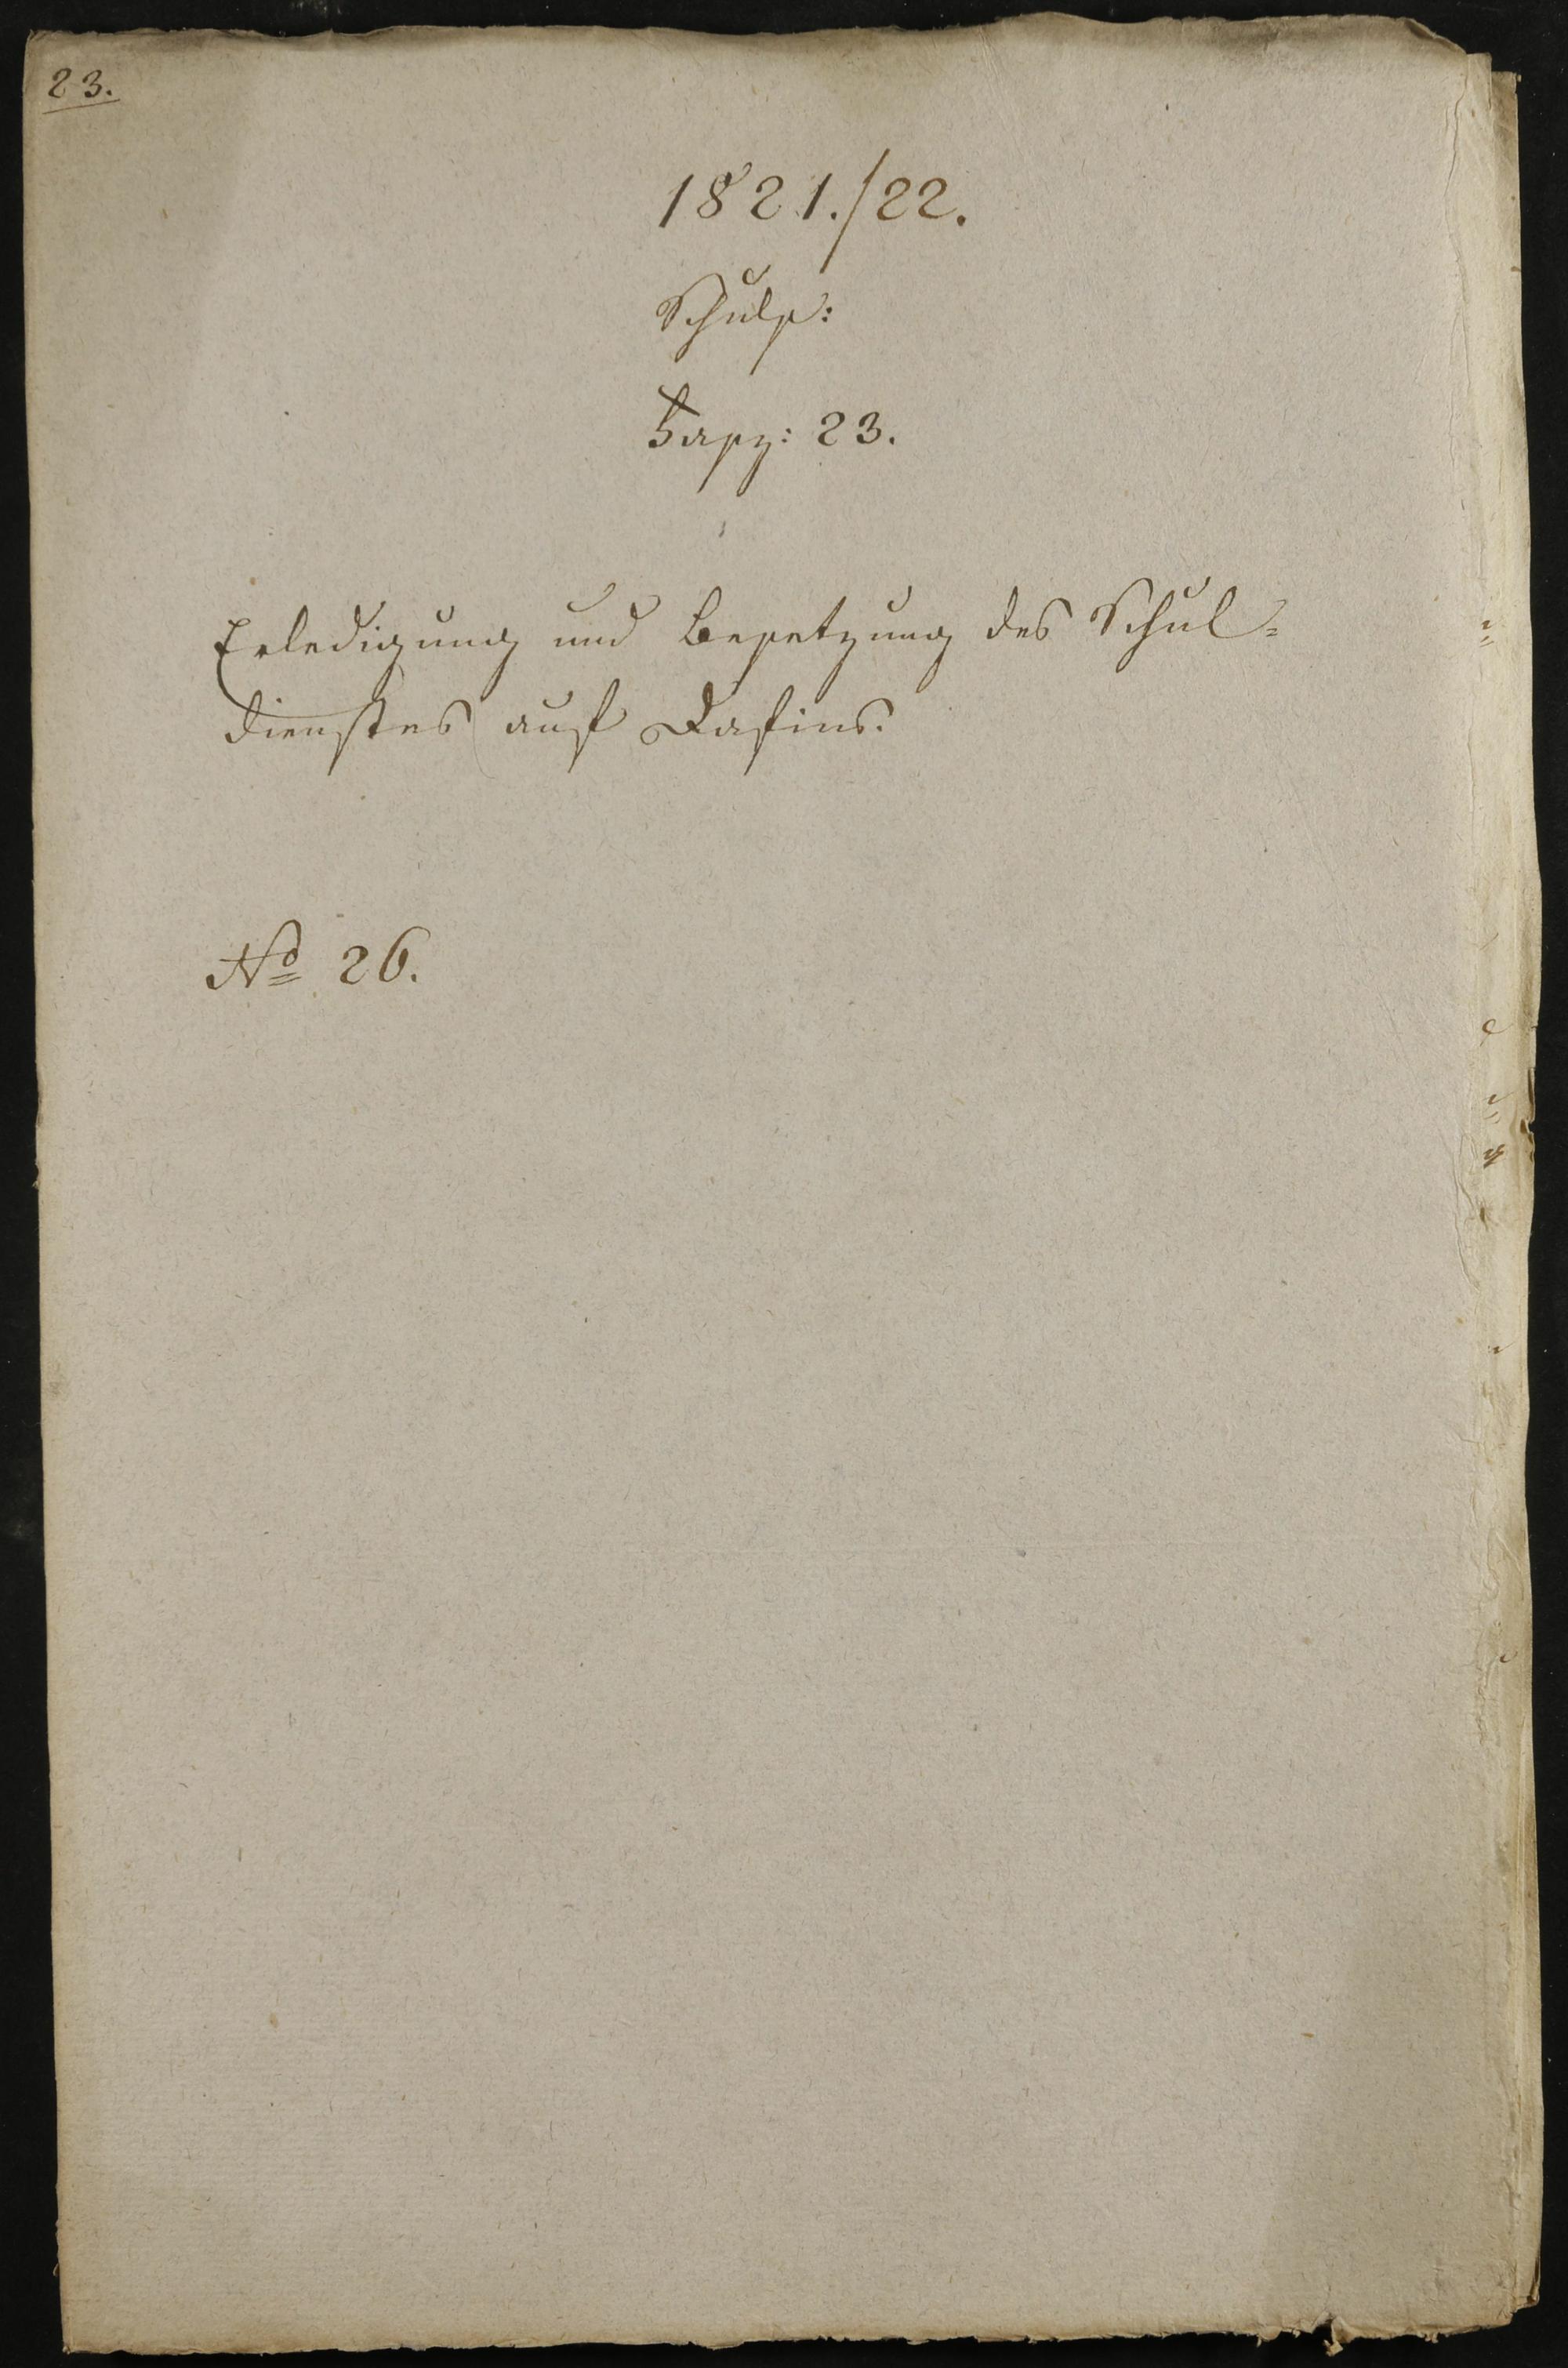 23.
1821./22.
Schuls:
Fasz: 23.
Erledigung und Besetzung des Schul=
dienstes auf Dafins.
No 26.